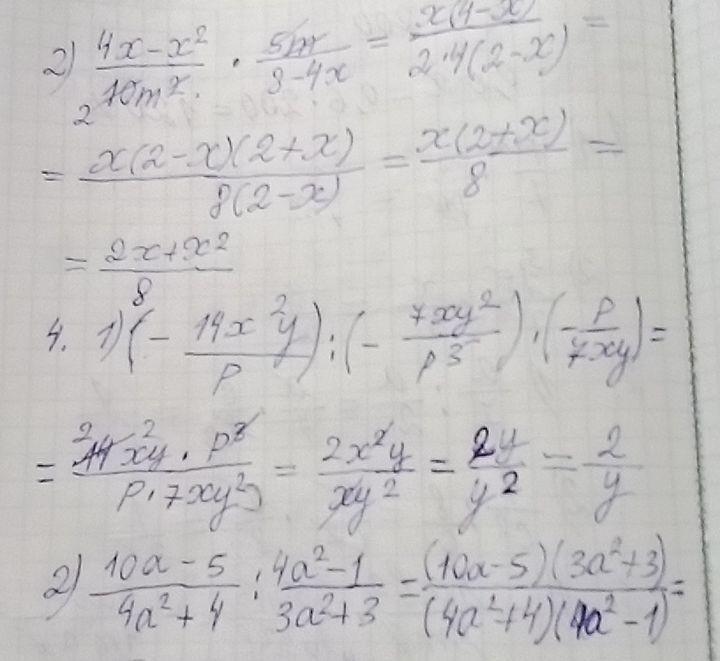 2) (4x-x²)/(10m²) · (5m)/(8-4x) = (x(4-x))/(2·4(2-x)) =
2
= (x(2-x)(2+x))/(8(2-x)) = (x(2+x))/8 =
= (2x+x²)/8
4. 1) (- (14x²y)/p) : (- (7xy²)/(p³)) · (- p/(7xy)) =
= (2 14 x²y · p³)/(p · 7xy²) = (2x²y)/(xy²) = (2y)/(y²) = 2/y
2) (10a-5)/(4a²+4) : (4a²-1)/(3a²+3) = ((10a-5)(3a²+3))/((4a²+4)(4a²-1)) =